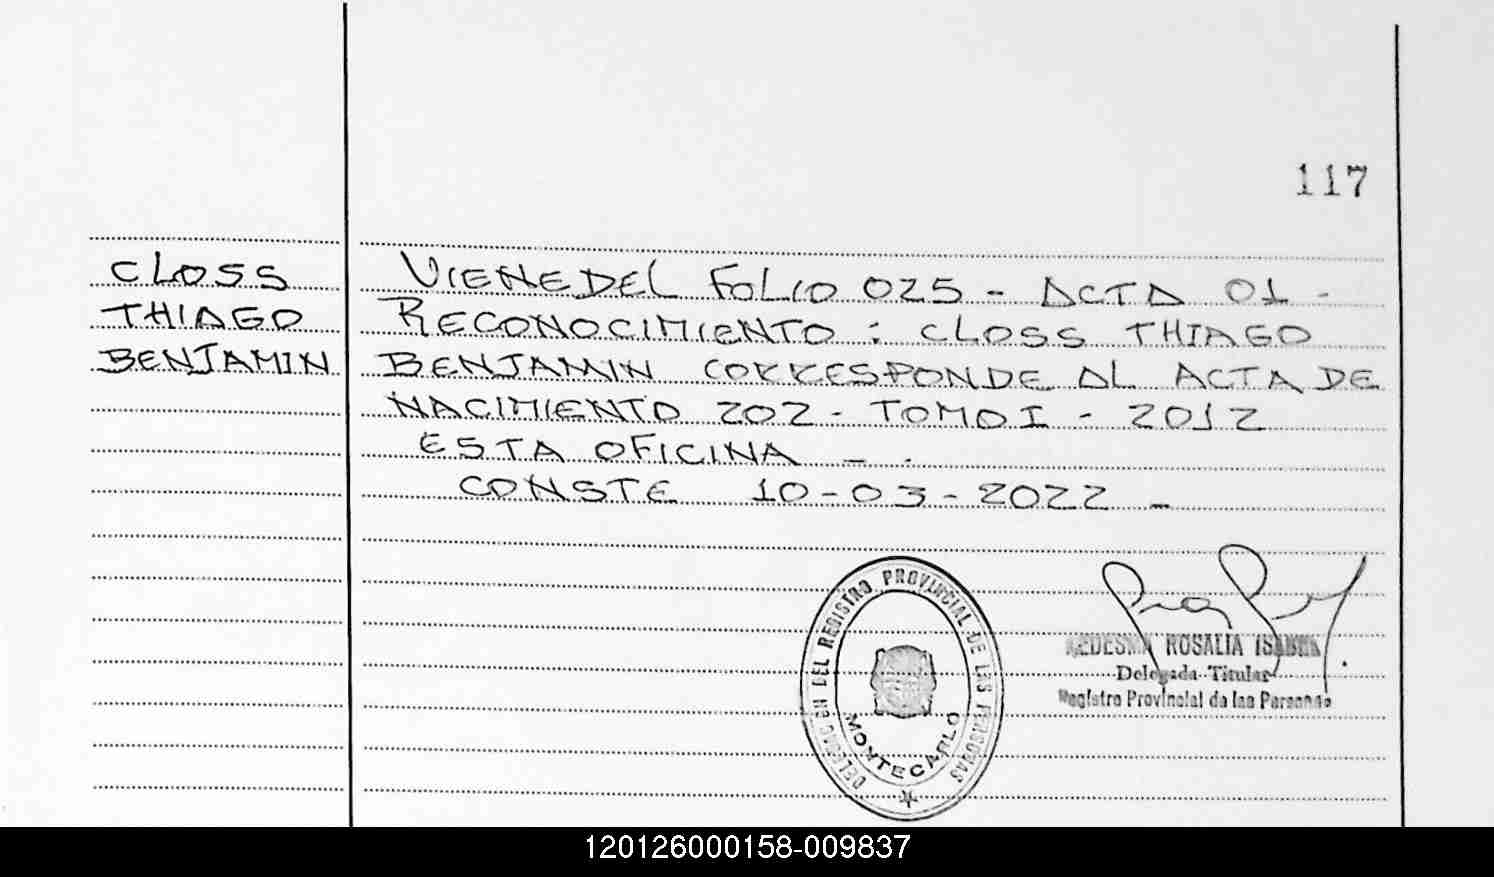 117
CLOSS
THIAGO
BENJAMIN
VIENE DEL FOLIO 025 - ACTA 01 -
RECONOCIMIENTO : CLOSS THIAGO
BENJAMIN CORRESPONDE AL ACTA DE
NACIMIENTO 202 - TOMO I - 2012
ESTA OFICINA - .
CONSTE 10-03-2022 -
DELEGACION DEL REGISTRO PROVINCIAL DE LAS PERSONAS
MONTECARLO
LEDESMA ROSALIA ISABEL
Delegada Titular
Registro Provincial de las Personas
120126000158-009837